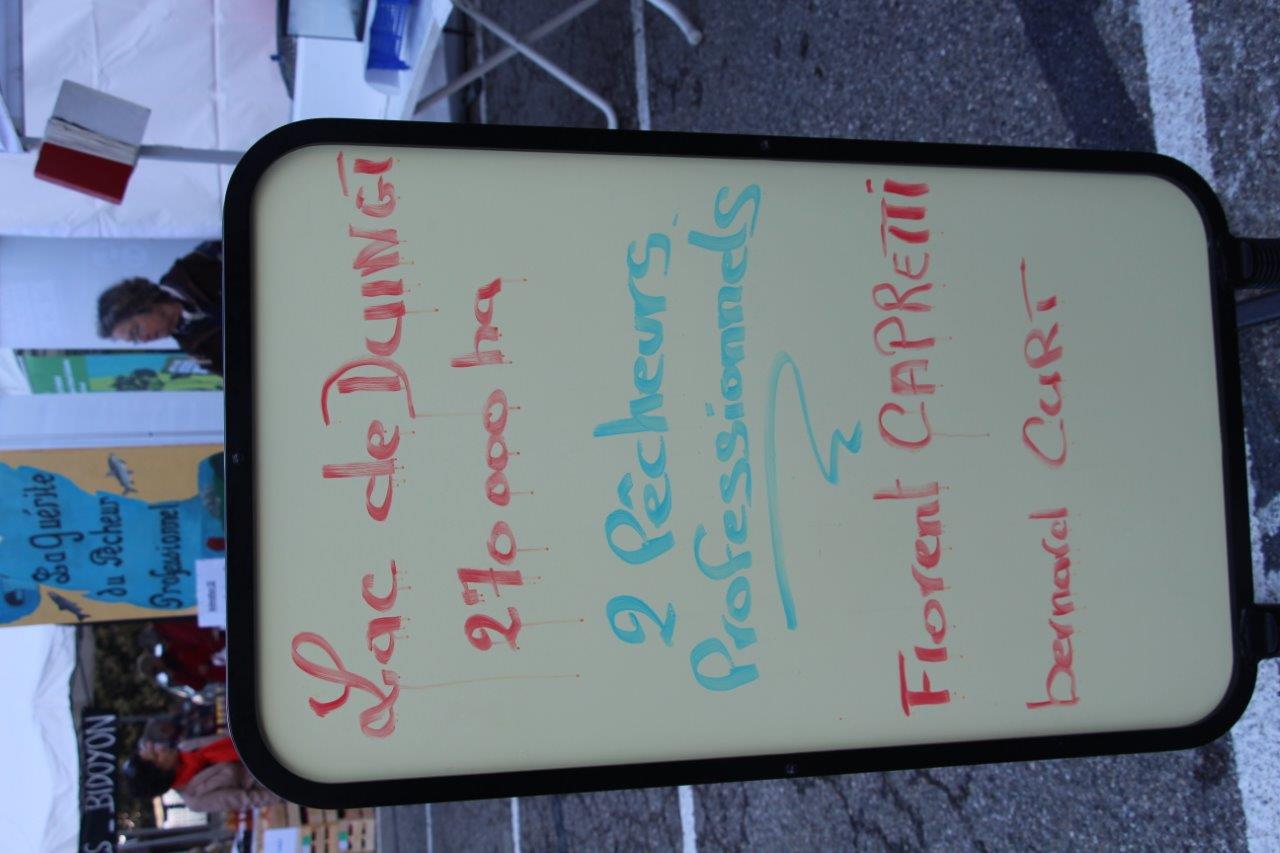 Lac de DUINGT
27000 ha
2 Pêcheurs
Professionnels
Florent CAPRETTI
bernard CURT
La Guérite
du Pêcheur
Professionnel
S - BIDOYON